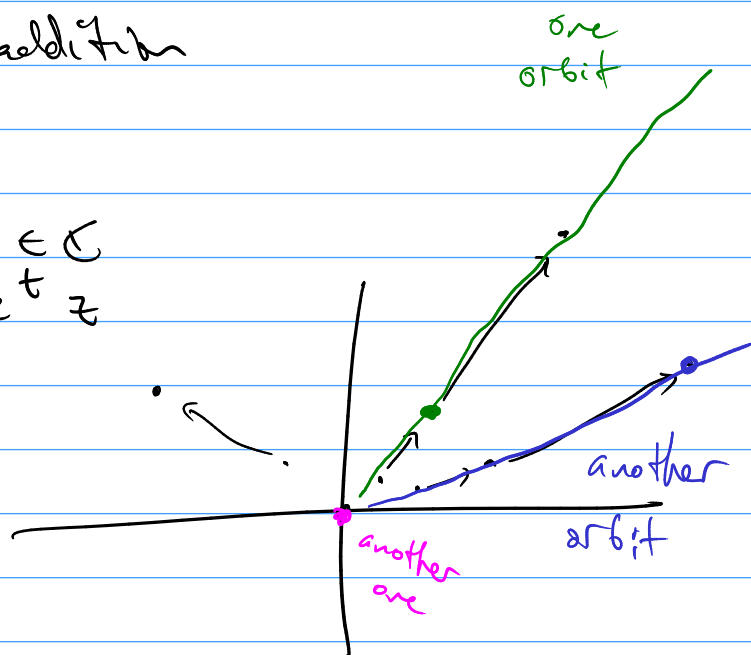 addition
one
orbit
∈ ℂ
t
z
another
orbit
another
one